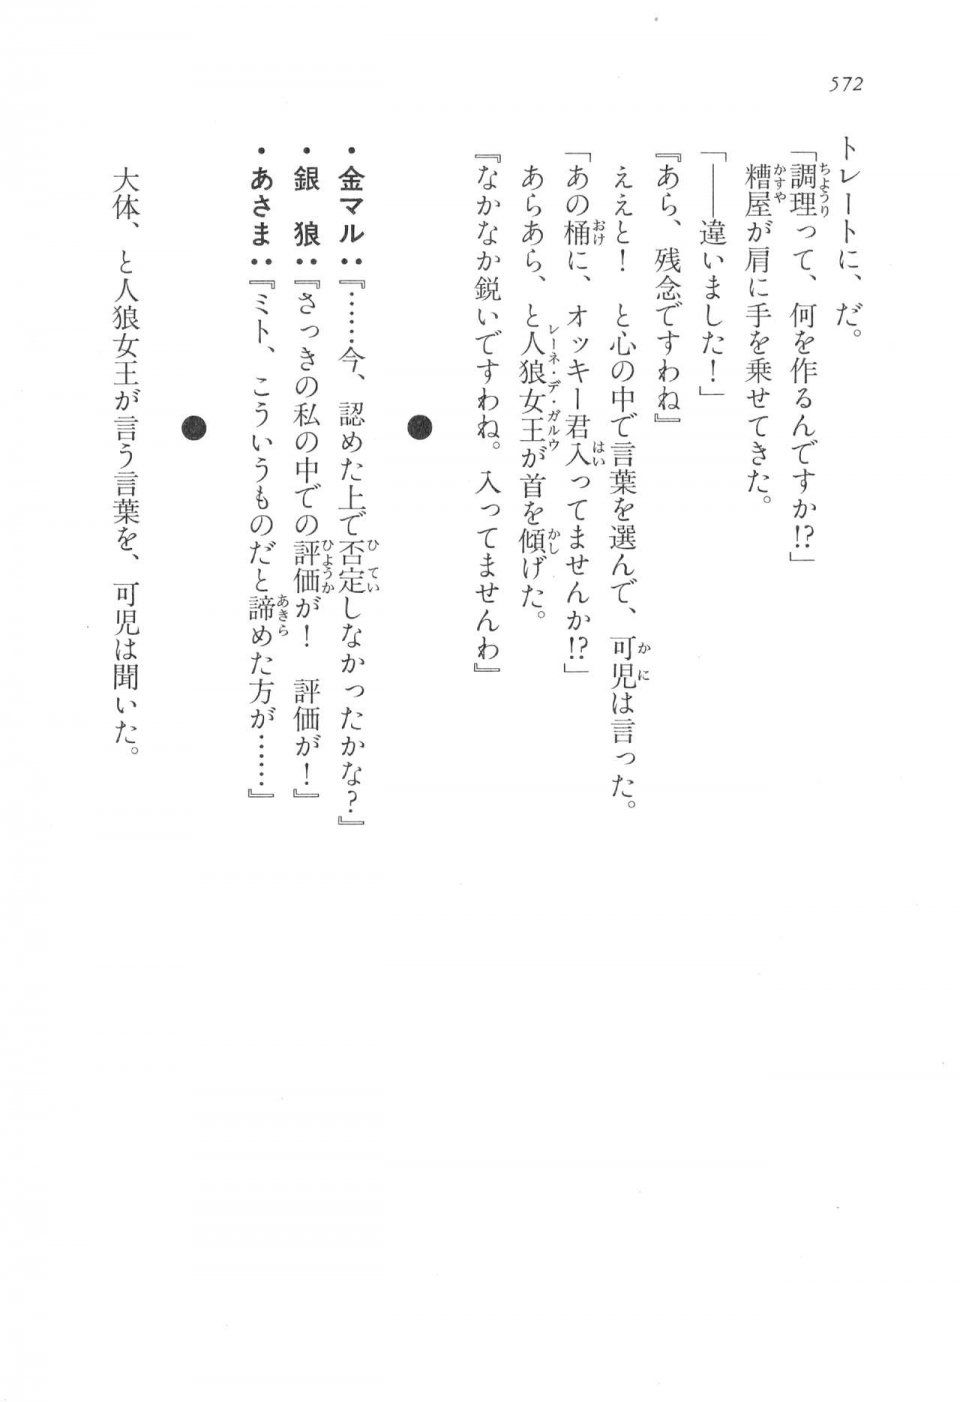 572
トレートに、だ。
「調理って、何を作るんですか!?」
糟屋が肩に手を乗せてきた。
「――違いました！」
『あら、残念ですわね』
ええと！　と心の中で言葉を選んで、可児は言った。
「あの桶に、オッキー君入ってませんか!?」
あらあら、と人狼女王が首を傾げた。
『なかなか鋭いですわね。入ってませんわ』
●
・金マル：『……今、認めた上で否定しなかったかな？』
・銀　狼：『さっきの私の中での評価が！　評価が！』
・あさま：『ミト、こういうものだと諦めた方が……』
●
大体、と人狼女王が言う言葉を、可児は聞いた。